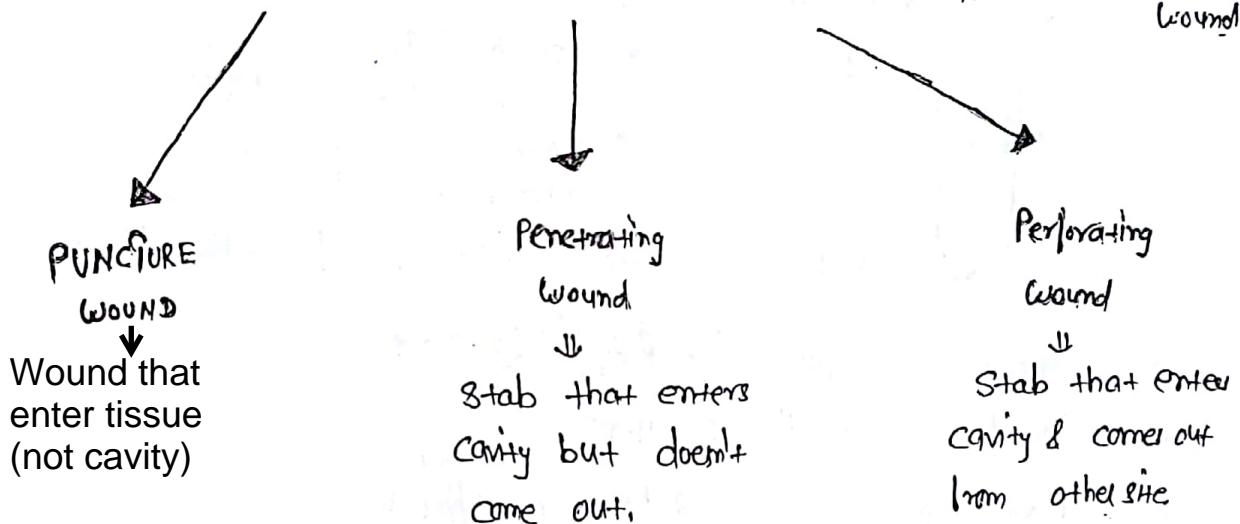 wound
PUNCTURE
WOUND
Wound that
enter tissue
(not cavity)
Penetrating
wound
Stab that enters
cavity but doesn't
come out.
Perforating
wound
Stab that enter
cavity & comes out
from other site